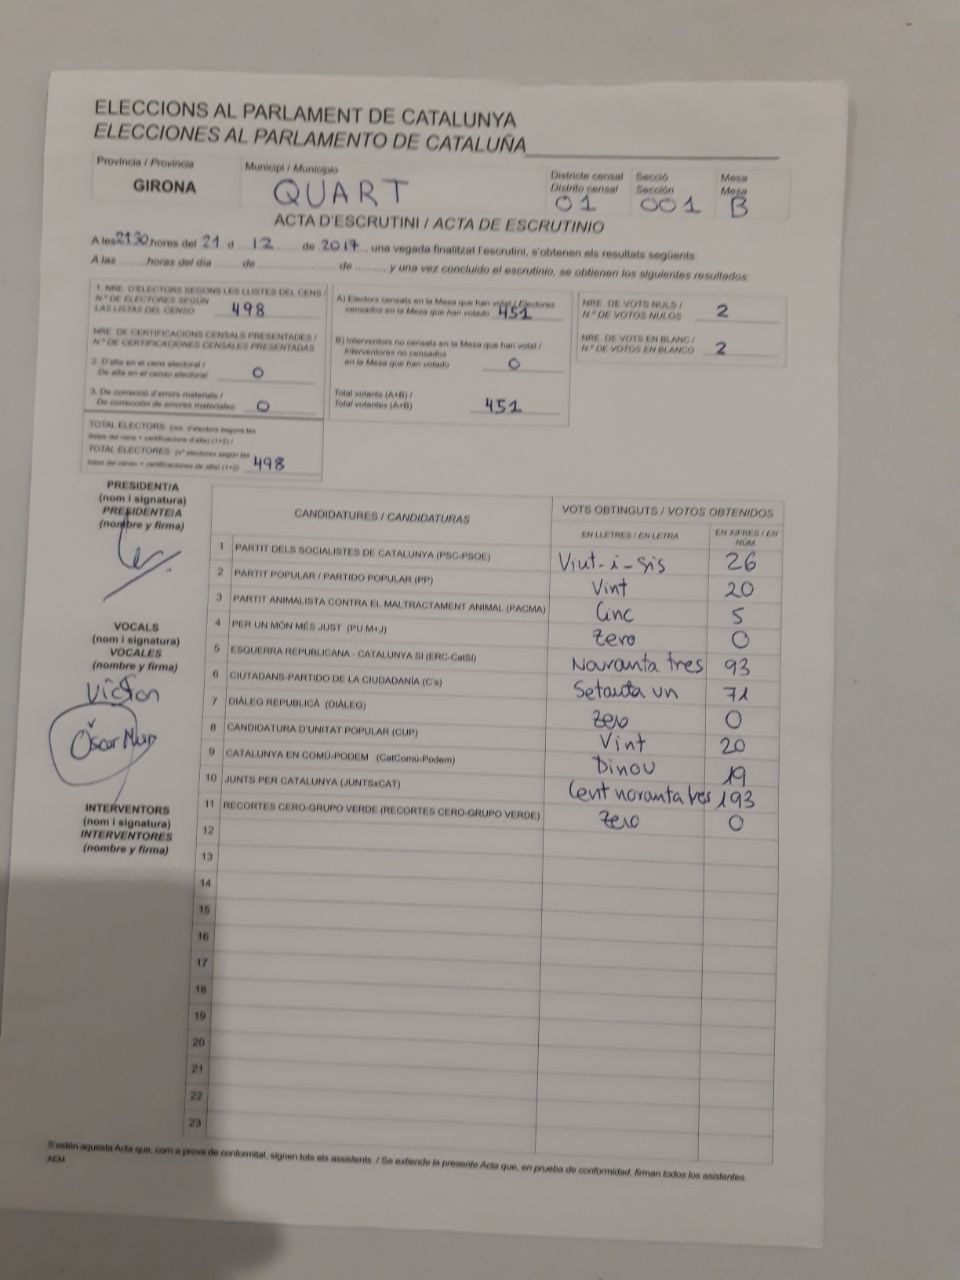 ELECCIONS AL PARLAMENT DE CATALUNYA
ELECCIONES AL PARLAMENTO DE CATALUÑA
Província / Provincia
GIRONA
Municipi / Municipio
QUART
Districte censal
Distrito censal
01
Secció
Sección
001
Mesa
Mesa
B
ACTA D'ESCRUTINI / ACTA DE ESCRUTINIO
A les 21 30 hores del 21 d 12 de 2017, una vegada finalitzat l'escrutini, s'obtenen els resultats següents:
A las ........ horas del día ........ de ........ de ........ y una vez concluido el escrutinio, se obtienen los siguientes resultados:
1. NRE. D'ELECTORS SEGONS LES LLISTES DEL CENS /
N.º DE ELECTORES SEGÚN
LAS LISTAS DEL CENSO 498
NRE. DE CERTIFICACIONS CENSALS PRESENTADES /
N.º DE CERTIFICACIONES CENSALES PRESENTADAS
2. D'alta en el cens electoral /
De alta en el censo electoral 0
3. De correcció d'errors materials /
De corrección de errores materiales 0
TOTAL ELECTORS (nre. d'electors segons les
llistes del cens + certificacions d'alta) (1+2) /
TOTAL ELECTORES (nº electores según las
listas del censo + certificaciones de alta) (1+2) 498
A) Electors censats en la Mesa que han votat / Electores
censados en la Mesa que han votado 451
B) Interventors no censats en la Mesa que han votat /
Interventores no censados
en la Mesa que han votado 0
Total votants (A+B) /
Total votantes (A+B) 451
NRE. DE VOTS NULS /
N.º DE VOTOS NULOS 2
NRE. DE VOTS EN BLANC /
N.º DE VOTOS EN BLANCO 2
PRESIDENT/A
(nom i signatura)
PRESIDENTE/A
(nombre y firma)
VOCALS
(nom i signatura)
VOCALES
(nombre y firma)
Víctor
INTERVENTORS
(nom i signatura)
INTERVENTORES
(nombre y firma)
CANDIDATURES / CANDIDATURAS
VOTS OBTINGUTS / VOTOS OBTENIDOS
EN LLETRES / EN LETRA
EN XIFRES / EN NÚM
1 PARTIT DELS SOCIALISTES DE CATALUNYA (PSC-PSOE) Vint-i-sis 26
2 PARTIT POPULAR / PARTIDO POPULAR (PP) Vint 20
3 PARTIT ANIMALISTA CONTRA EL MALTRACTAMENT ANIMAL (PACMA) Cinc 5
4 PER UN MÓN MÉS JUST (PU M+J) Zero 0
5 ESQUERRA REPUBLICANA - CATALUNYA SÍ (ERC-CatSí) Nouranta tres 93
6 CIUTADANS-PARTIDO DE LA CIUDADANÍA (C's) Setanta un 71
7 DIÀLEG REPUBLICÀ (DIÀLEG) Zero 0
8 CANDIDATURA D'UNITAT POPULAR (CUP) Vint 20
9 CATALUNYA EN COMÚ-PODEM (CatComú-Podem) Dinou 19
10 JUNTS PER CATALUNYA (JUNTSxCAT) Cent noranta tres 193
11 RECORTES CERO-GRUPO VERDE (RECORTES CERO-GRUPO VERDE) Zero 0
12
13
14
15
16
17
18
19
20
21
22
23
S'estén aquesta Acta que, com a prova de conformitat, signen tots els assistents. / Se extiende la presente Acta que, en prueba de conformidad, firman todos los asistentes.
AEM